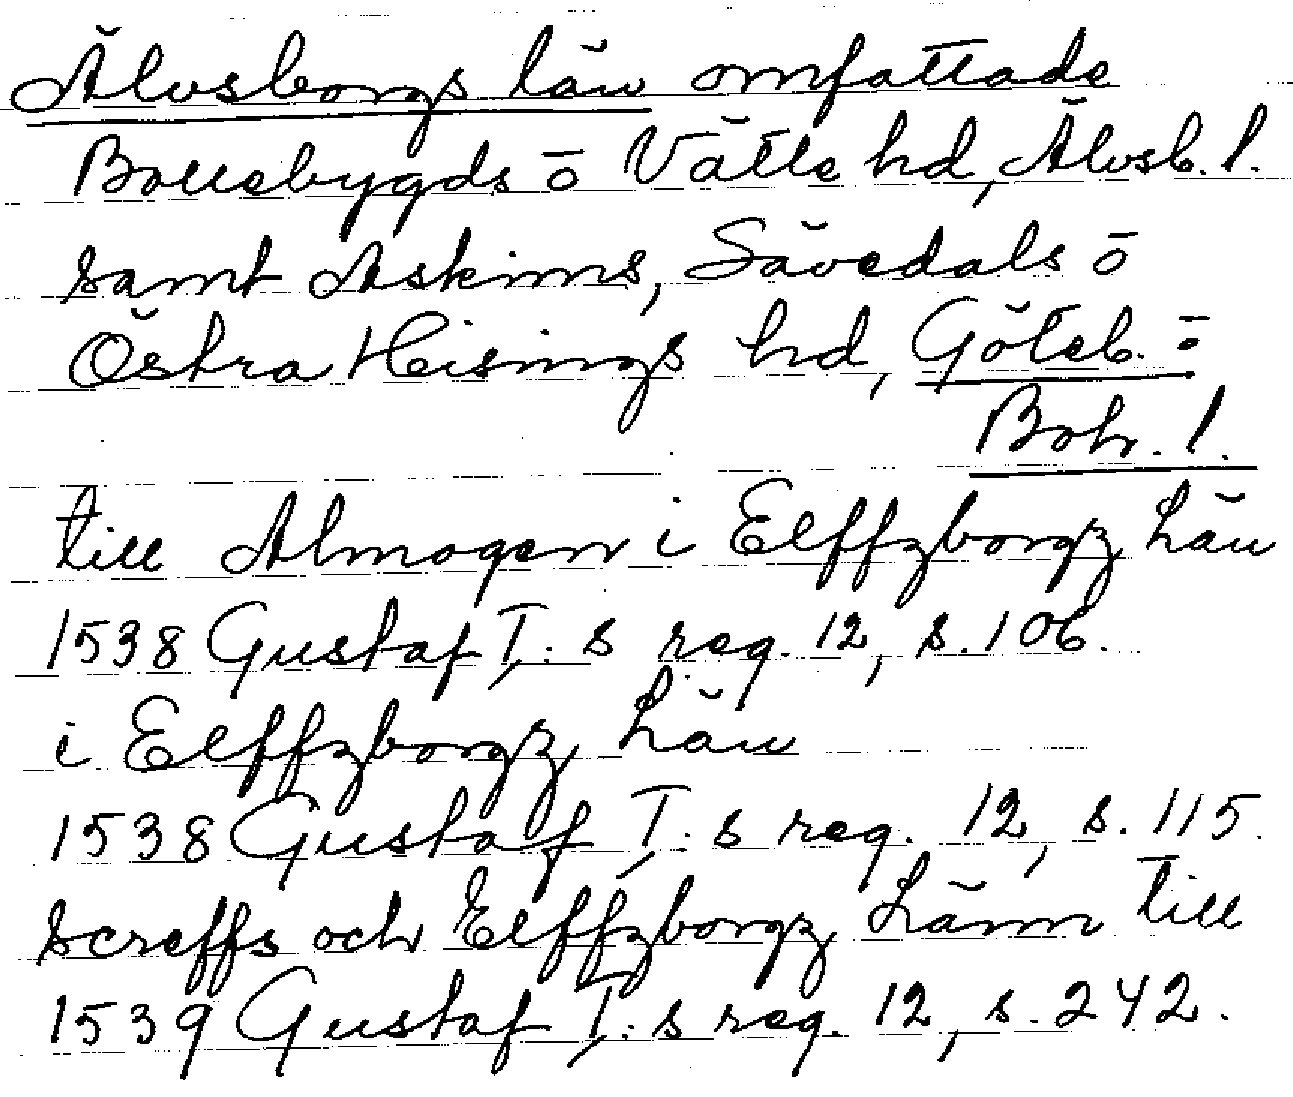 Älvsborgs län omfattade
Bollebygds o Vätte hd, Älvsb. l.
samt Askims, Sävedals o
Östra Hisings hd, Göteb. o
Boh. l.
till Almogen i Elffzborgz Län
1538 Gustaf I:s reg. 12, s. 106.
i Elffzborgz Län
1538 Gustaf I:s reg. 12, s. 115.
screffs och Elffzborgz Länn till
1539 Gustaf I:s reg. 12, s. 242.